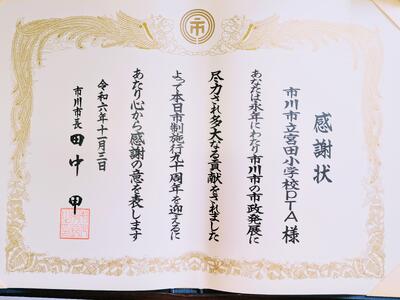 感謝状
市川市立宮田小学校PTA 様
あなたは永年にわたり市川市の市政発展に
尽力され多大なる貢献をされました
よって本日市制施行九十周年を迎えるに
あたり心から感謝の意を表します
令和六年十一月三日
市川市長 田中 甲